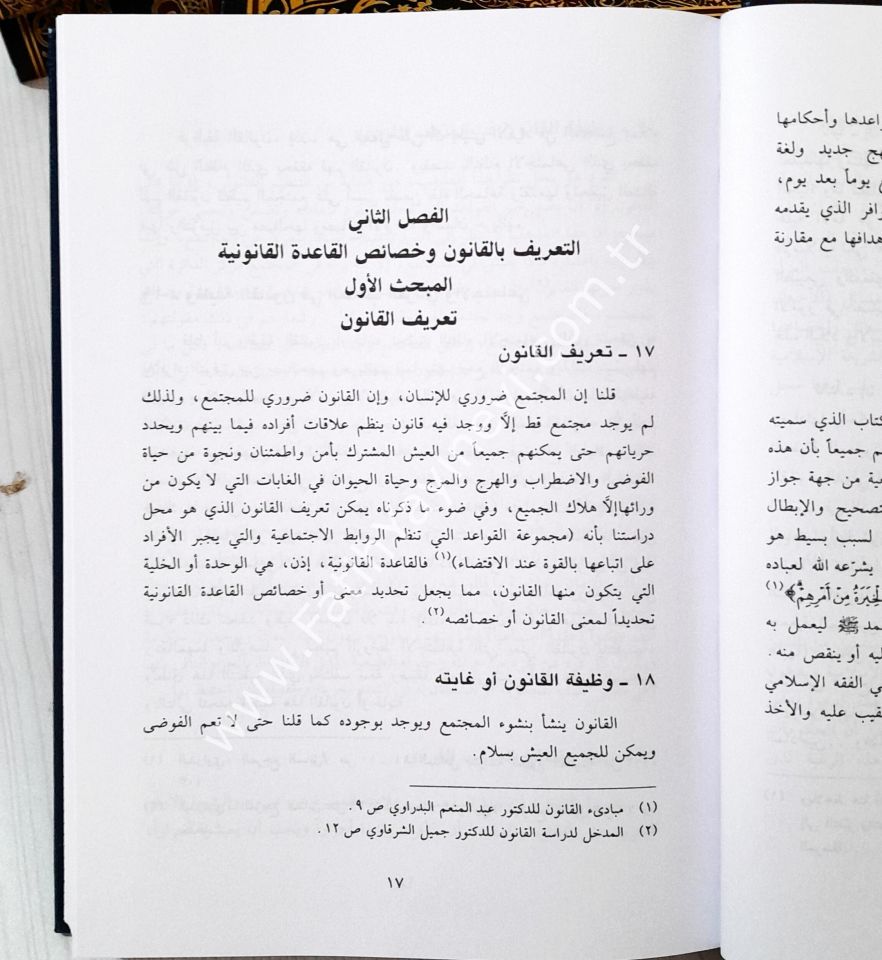 الفصل الثاني
التعريف بالقانون وخصائص القاعدة القانونية
المبحث الأول
تعريف القانون
١٧ ـ تعريف القانون
قلنا إن المجتمع ضروري للإنسان، وإن القانون ضروري للمجتمع، ولذلك
لم يوجد مجتمع قط إلاَّ ووجد فيه قانون ينظم علاقات أفراده فيما بينهم ويحدد
حرياتهم حتى يمكنهم جميعاً من العيش المشترك بأمن واطمئنان ونجوة من حياة
الفوضى والاضطراب والهرج والمرج وحياة الحيوان في الغابات التي لا يكون من
ورائهاإلاَّ هلاك الجميع، وفي ضوء ما ذكرناه يمكن تعريف القانون الذي هو محل
دراستنا بأنه (مجموعة القواعد التي تنظم الروابط الاجتماعية والتي يجبر الأفراد
على اتباعها بالقوة عند الاقتضاء)(١) فالقاعدة القانونية، إذن، هي الوحدة أو الخلية
التي يتكون منها القانون، مما يجعل تحديد معنى أو خصائص القاعدة القانونية
تحديداً لمعنى القانون أو خصائصه(٢).
١٨ ـ وظيفة القانون أو غايته
القانون ينشأ بنشوء المجتمع ويوجد بوجوده كما قلنا حتى لا تعم الفوضى
ويمكن للجميع العيش بسلام.
(١) مبادىء القانون للدكتور عبد المنعم البدراوي ص ٩.
(٢) المدخل لدراسة القانون للدكتور جميل الشرقاوي ص ١٢.
١٧
اعدها وأحكامها
هج جديد ولغة
يوماً بعد يوم،
افر الذي يقدمه
هدافها مع مقارنة
كتاب الذي سميته
م جميعاً بأن هذه
ية من جهة جواز
تصحيح والإبطال
لسبب بسيط هو
يشرّعه الله لعباده
لْخِيَرَةُ مِنْ أَمْرِهِمْ﴾(١)
مد ﷺ ليعمل به
ليه أو ينقص منه.
ي الفقه الإسلامي
قيب عليه والأخذ
www.Fatihyayinevi.com.tr